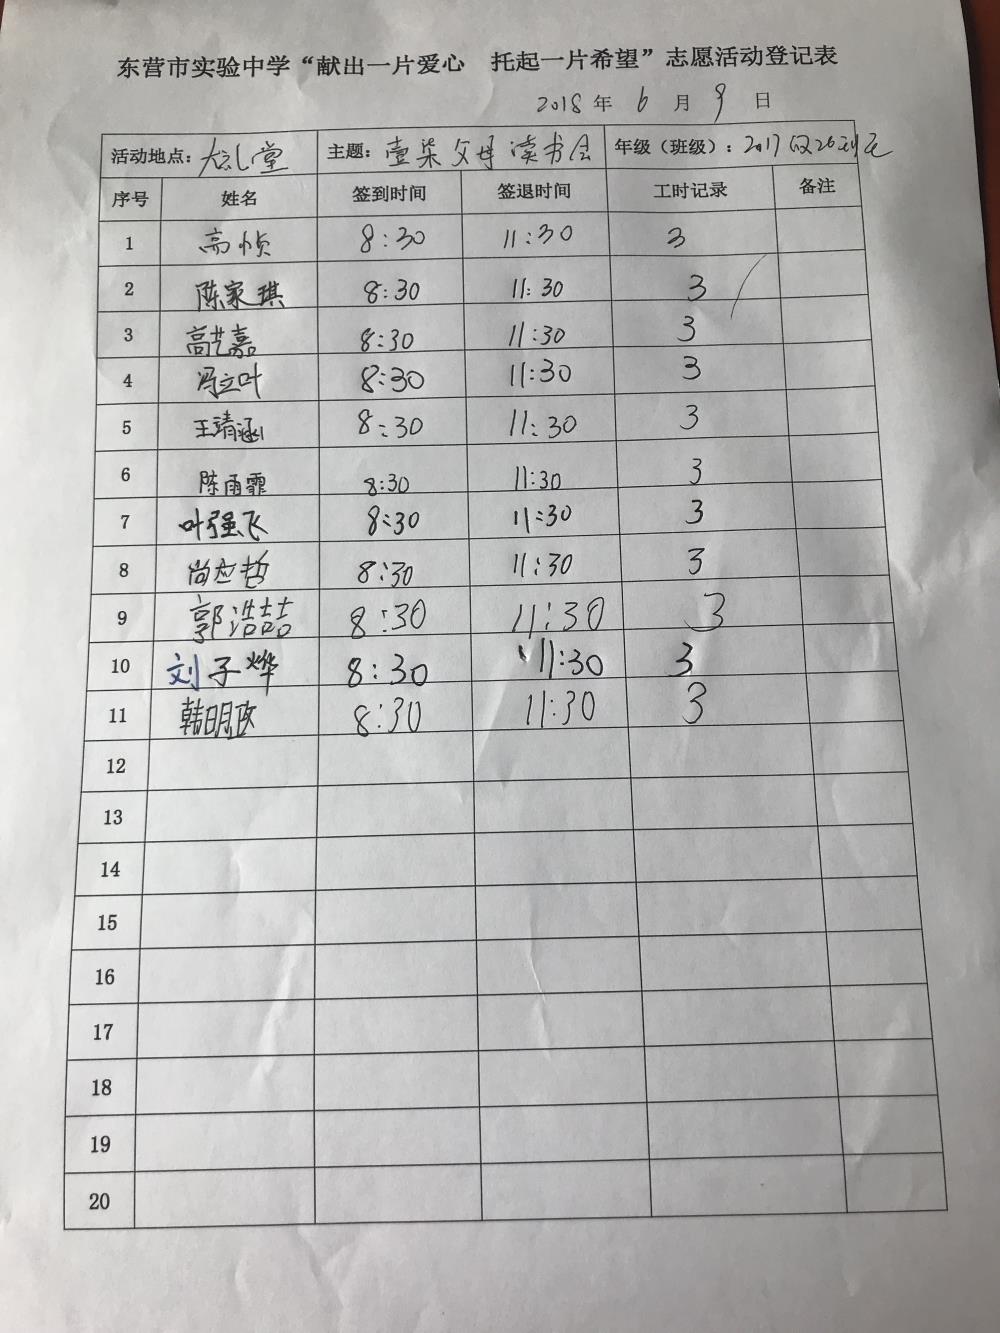 东营市实验中学“献出一片爱心 托起一片希望”志愿活动登记表
2018 年 6 月 9 日
活动地点：大礼堂 主题：壹柒父母读书会 年级（班级）：2017级26
序号 姓名 签到时间 签退时间 工时记录 备注
1 高桢 8:30 11:30 3
2 陈家琪 8:30 11:30 3
3 高艺嘉 8:30 11:30 3
4 冯立叶 8:30 11:30 3
5 王靖涵 8:30 11:30 3
6 陈雨霏 8:30 11:30 3
7 叶强飞 8:30 11:30 3
8 尚应哲 8:30 11:30 3
9 郭浩喆 8:30 11:30 3
10 刘子烨 8:30 11:30 3
11 韩明政 8:30 11:30 3
12
13
14
15
16
17
18
19
20